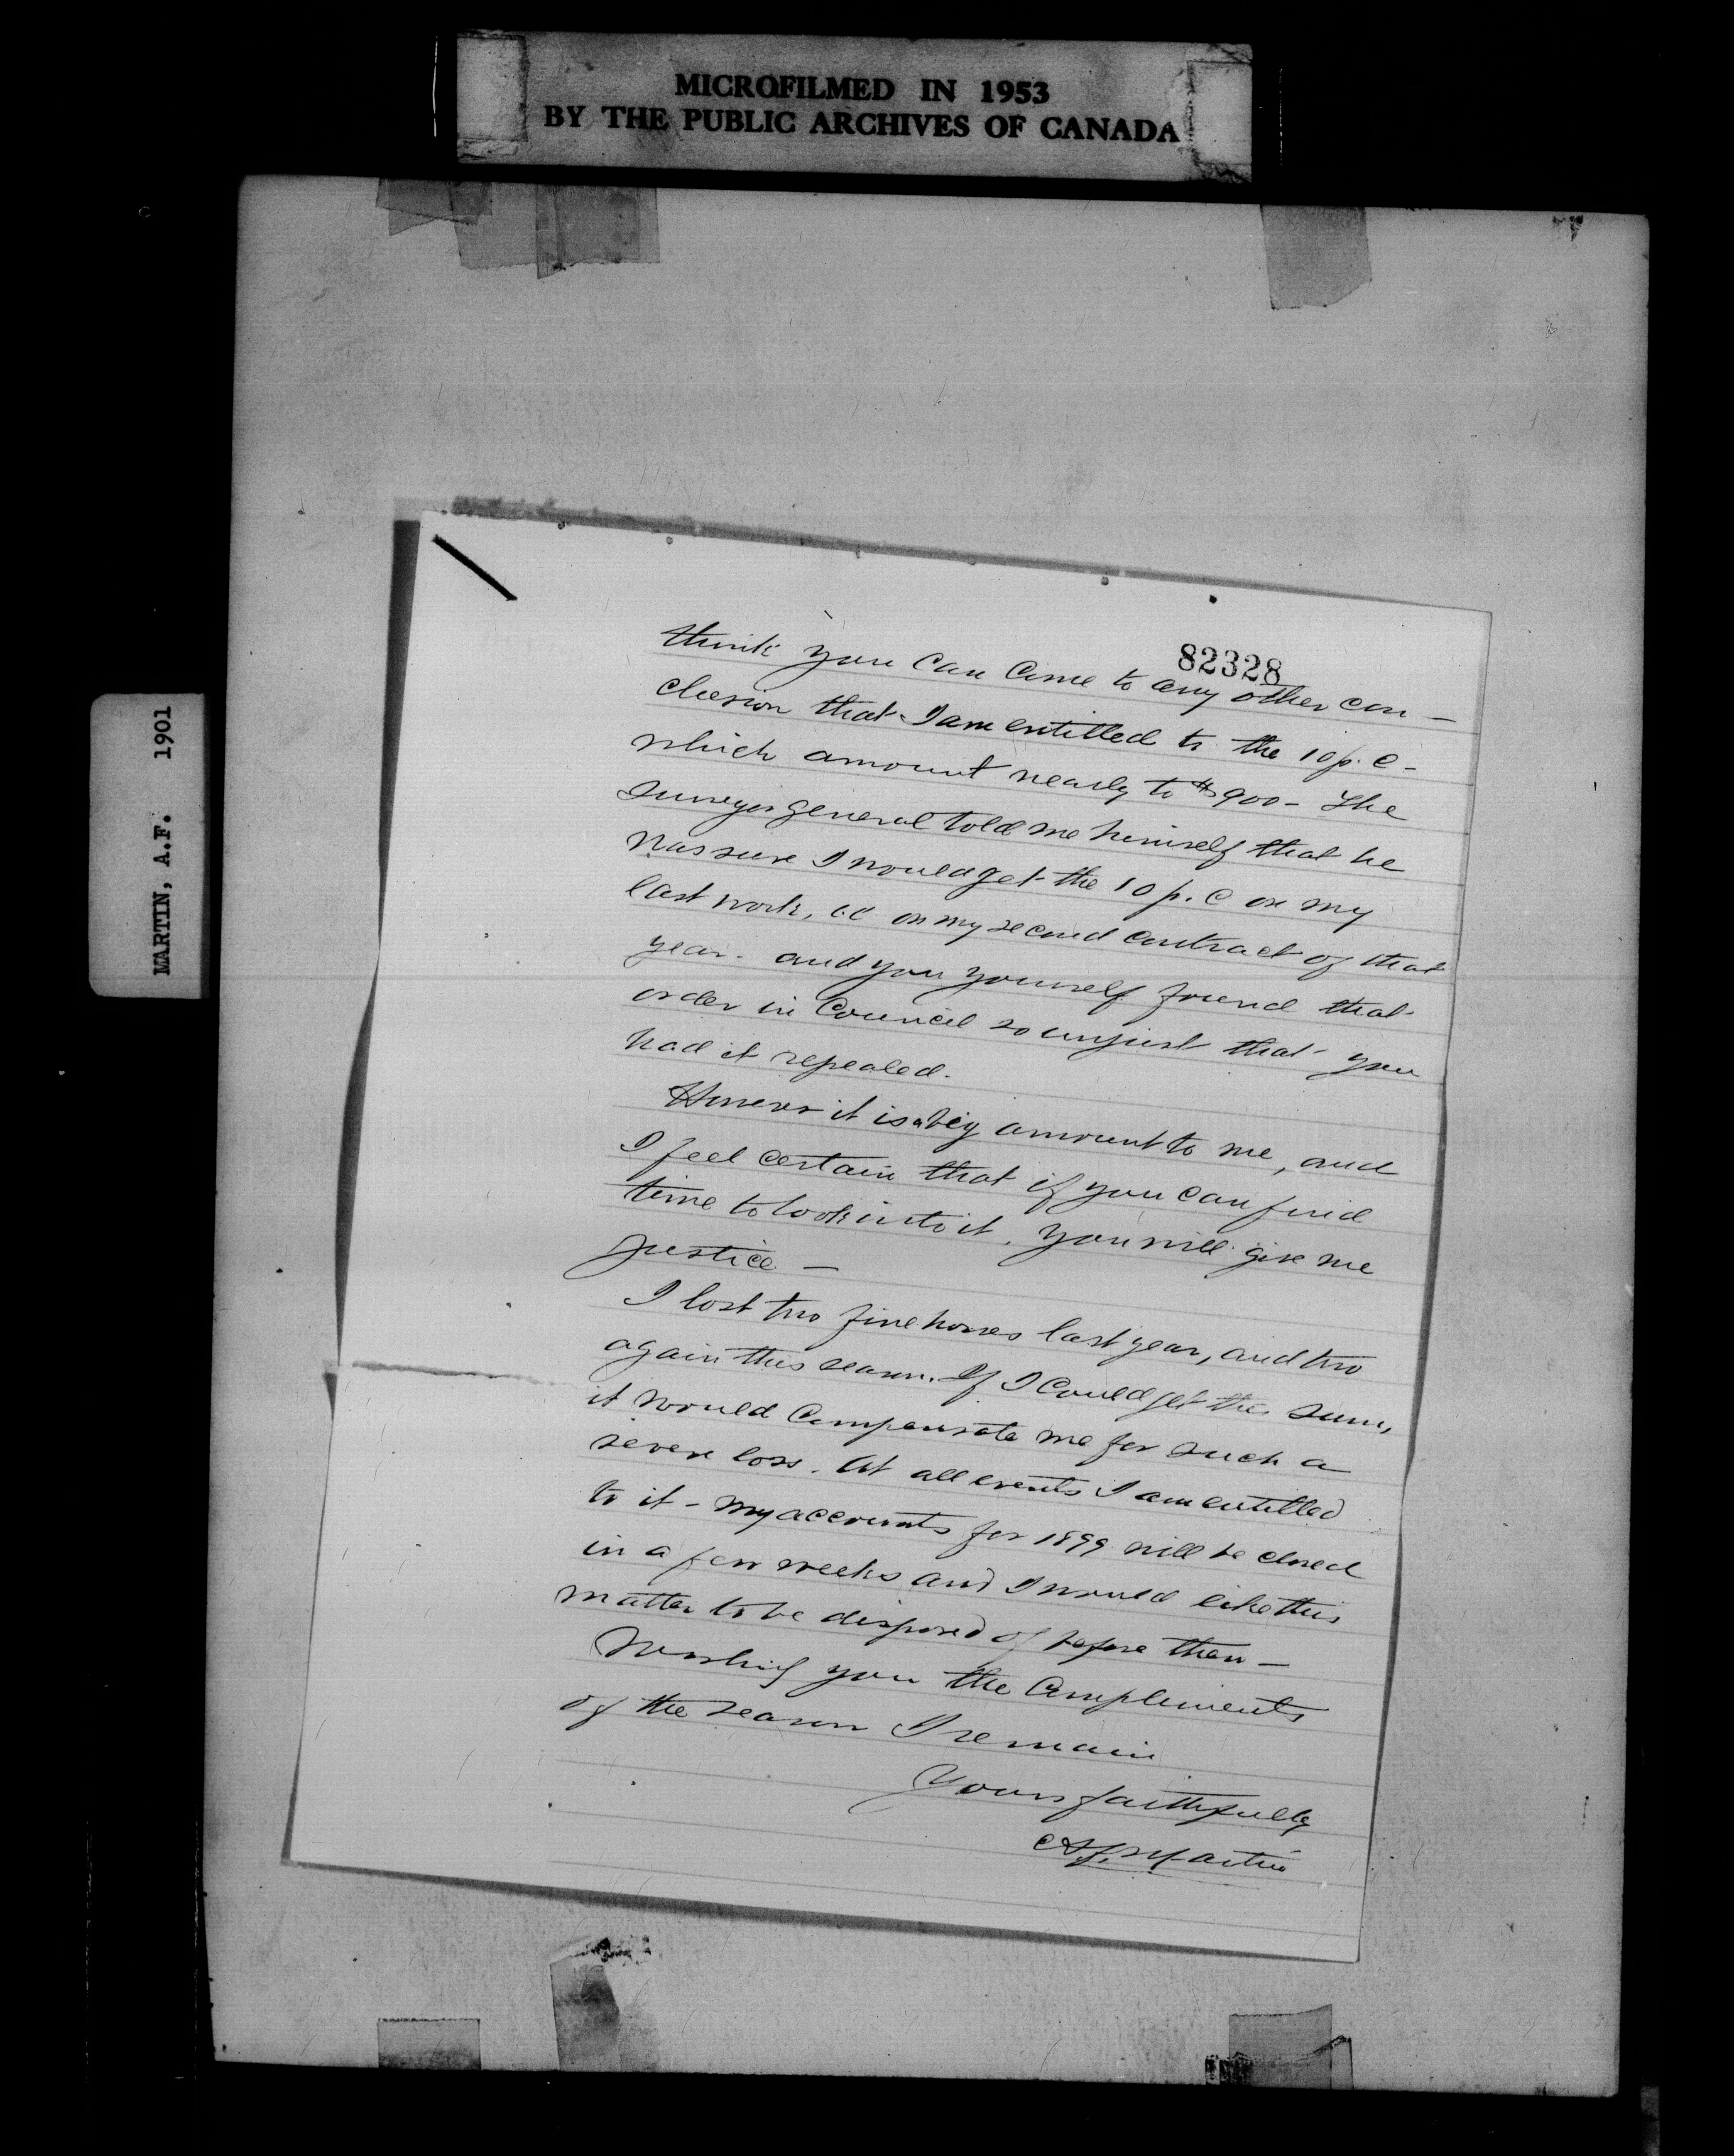 MICROFILMED IN 1953
BY THE PUBLIC ARCHIVES OF CANADA
MARTIN, A.F. 1901
82328
think you can come to any other con-
clusion that I am entitled to the 10 p. c -
which amount nearly to $900 - The
Surveyor general told me himself that he
was sure I would get the 10 p. c on my
last work, i.e on my second contract of that
year. and you yourself found that
order in Council so unjust that you
had it repealed.
However it is a big amount to me, and
I feel certain that if you can find
time to look into it, you will give me
justice -
I lost two fine horses last year, and two
again this season. If I could get this sum,
it would compensate me for such a
severe loss. At all events I am entitled
to it - my accounts for 1899 will be closed
in a few weeks and I would like this
matter to be disposed of before then -
Wishing you the compliments
of the season I remain
Yours faithfully
A.F. Martin